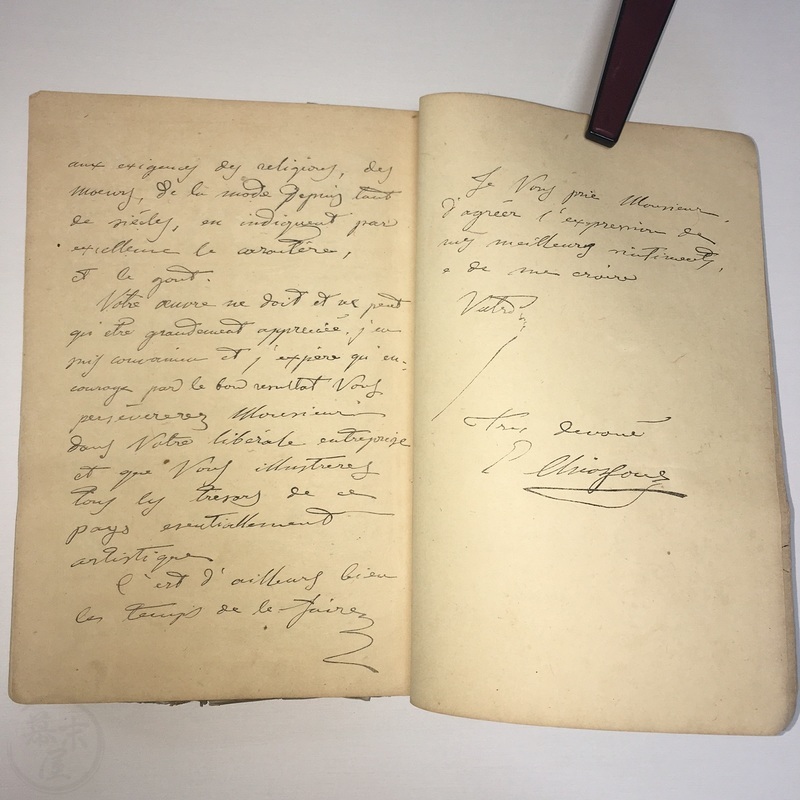 aux exigences des religions, des
moeurs, de la mode depuis tant
de siécles, en indiquent par
excellence le caractére,
et le gout.
Votre œuvre ne doit et ne peut
qu'être grandement appreciée, j'en
suis convaincu et j'éspère qu'en-
couragé par le bon resultat Vous
persévérerez Monsieur
dans Votre libérale entreprise
et que Vous illustrerez
tous les tresors de ce
pays essentiellement
artistique
C'est d'ailleurs bien
les temps de le faire
Je Vous prie Monsieur,
d'agréer l'expression de
mes meilleurs sentiments,
e de me croire
Votre
Tres devoué